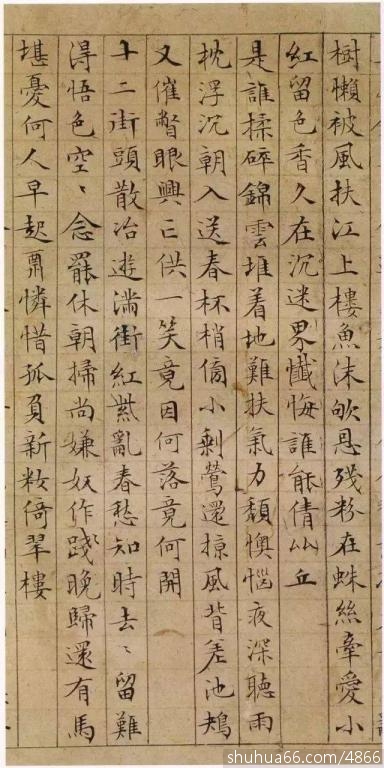 樹懶被風扶江上樓魚沫欨恩殘粉在蛛絲牽愛小
紅留色香久在沉迷界懺悔誰能倩比丘
是誰揉碎錦雲堆着地難扶氣力頹懊惱夜深聽雨
枕浮沉朝入送春杯梢傍小剩鶯還掠風背差池鴂
又催瞥眼興亡供一笑竟因何落竟何開
十二街頭散冶遊滿街紅紫亂春愁知時去〻留難
得悟色空〻念罷休朝掃尚嫌奴作踐晚歸還有馬
堪憂何人早起肎憐惜孤負新妝倚翠樓
shuhua66.com/4866